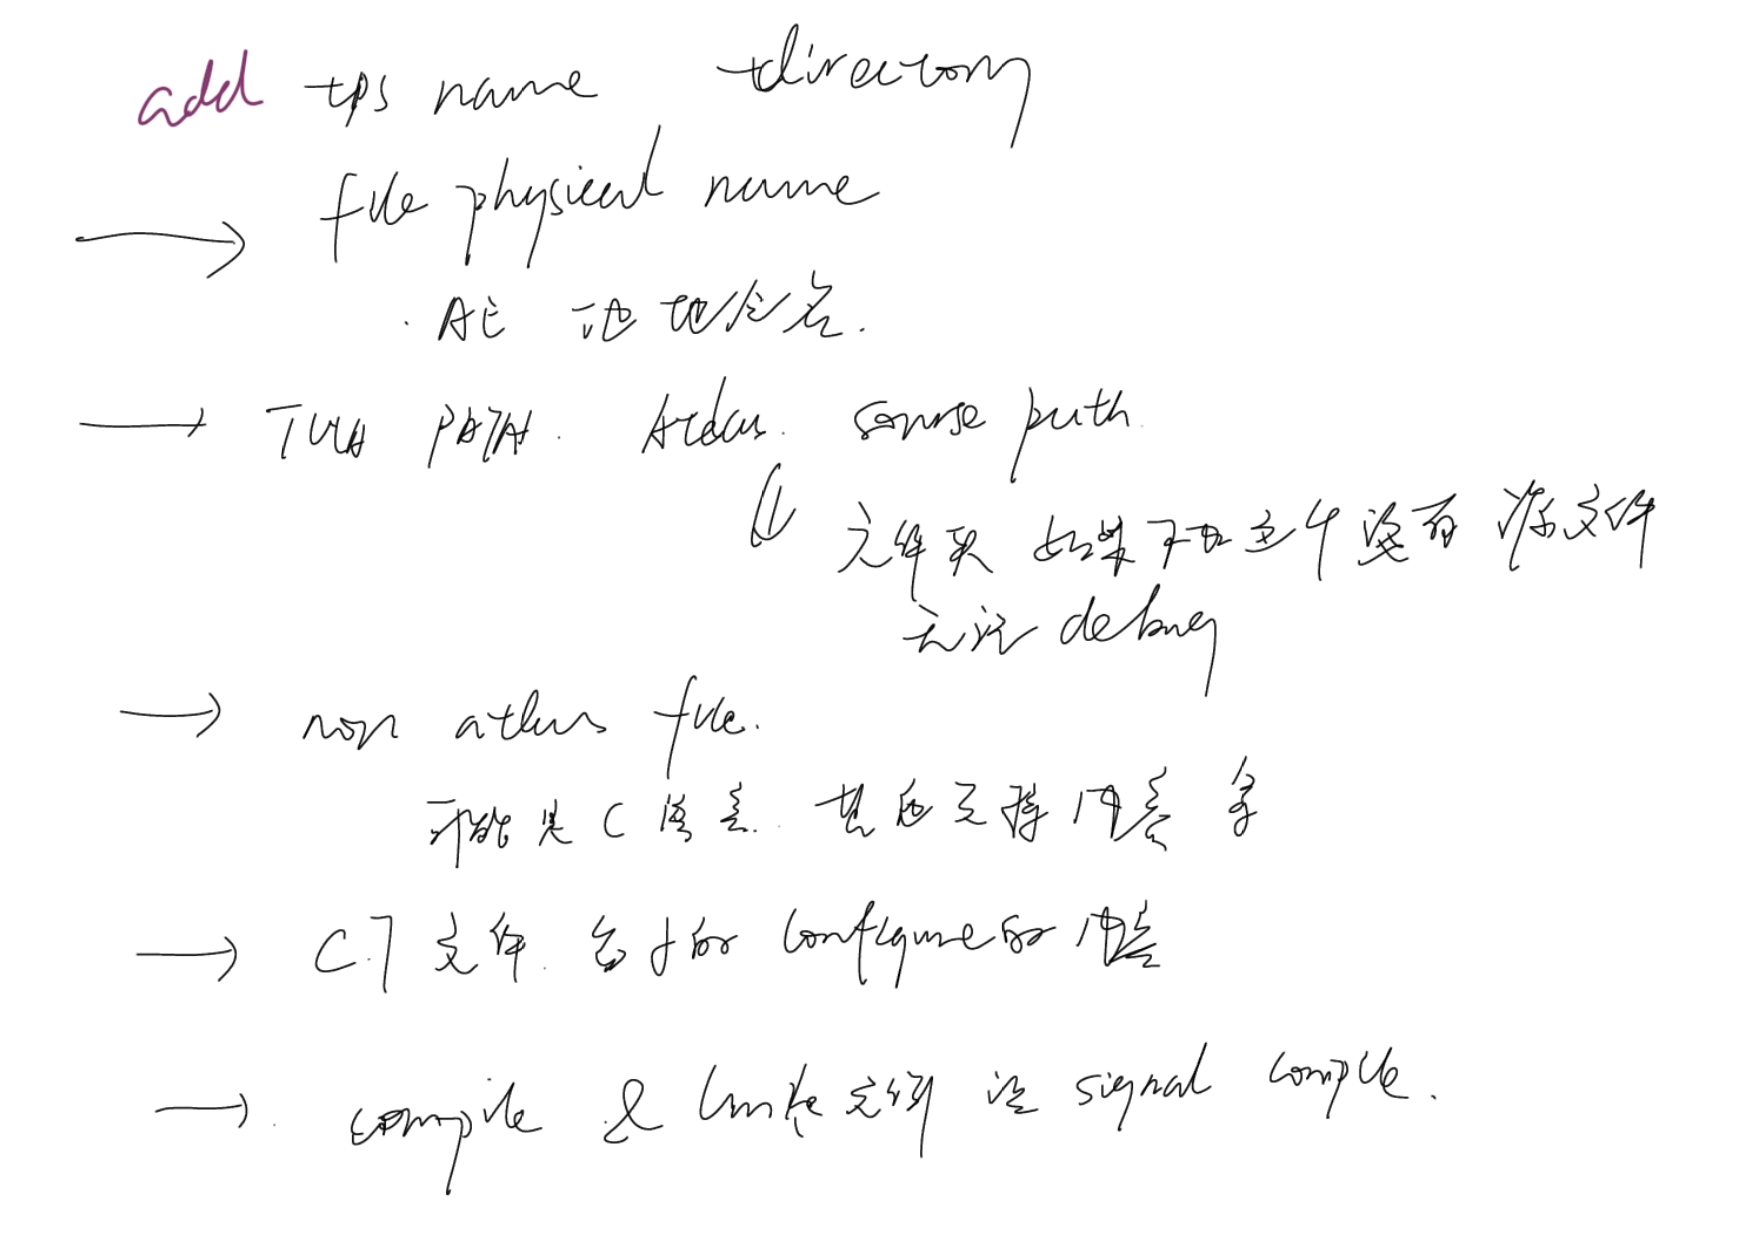 add tps name directory
→ file physical name
. AE
→ TUA PATH. Atlas. source path
文件夹 如果不加这个没有源文件
无法 debug
→ non atlas file.
可能是 C 语言. 其他支持内容 等
→ C.7 文件. configure 内容
→. compile & 文件 signal compile.